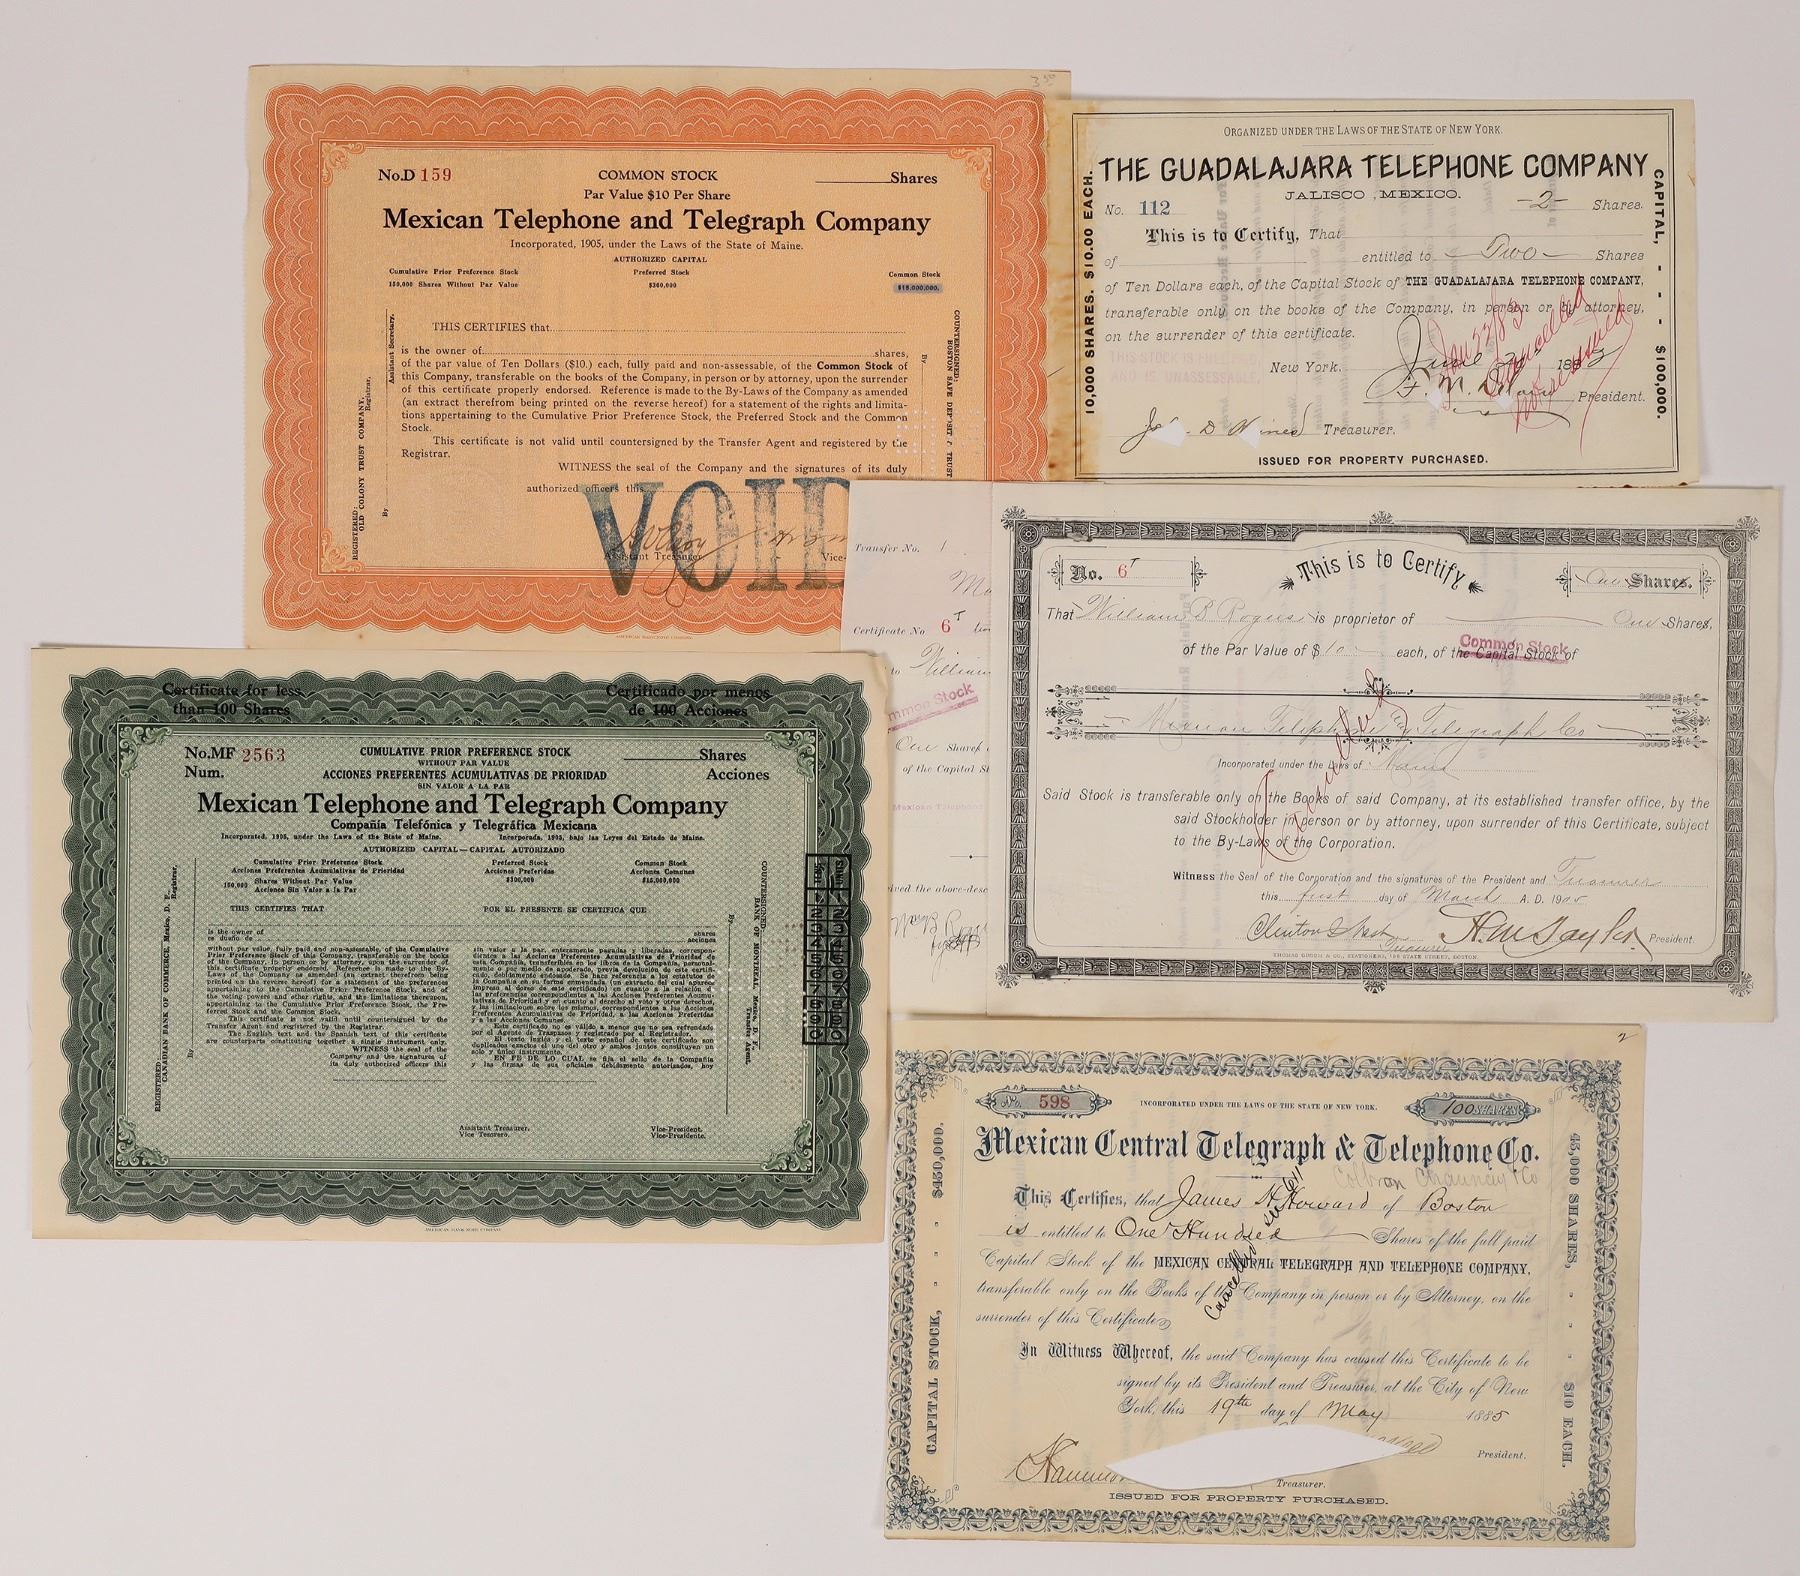 3 50
No.D 159
COMMON STOCK
Shares
Par Value $10 Per Share
Mexican Telephone and Telegraph Company
Incorporated, 1905, under the Laws of the State of Maine.
AUTHORIZED CAPITAL
Cumulative Prior Preference Stock
Preferred Stock
Common Stock
150,000 Shares Without Par Value
$300,000
$15,000,000.
THIS CERTIFIES that
is the owner of shares,
of the par value of Ten Dollars ($10.) each, fully paid and non-assessable, of the Common Stock of
this Company, transferable on the books of the Company, in person or by attorney, upon the surrender
of this certificate properly endorsed. Reference is made to the By-Laws of the Company as amended
(an extract therefrom being printed on the reverse hereof) for a statement of the rights and limita-
tions appertaining to the Cumulative Prior Preference Stock, the Preferred Stock and the Common
Stock.
This certificate is not valid until countersigned by the Transfer Agent and registered by the
Registrar.
WITNESS the seal of the Company and the signatures of its duly
authorized officers this
VOID
Assistant Treasurer
Vice-
REGISTERED:
OLD COLONY TRUST COMPANY,
Registrar,
By
Assistant Secretary.
COUNTERSIGNED:
BOSTON SAFE DEPOSIT & TRUST
By
AMERICAN BANKNOTE COMPANY.
ORGANIZED UNDER THE LAWS OF THE STATE OF NEW YORK.
THE GUADALAJARA TELEPHONE COMPANY
JALISCO, MEXICO.
No. 112
-2- Shares.
This is to Certify, That
of entitled to Two Shares
of Ten Dollars each, of the Capital Stock of THE GUADALAJARA TELEPHONE COMPANY,
transferable only on the books of the Company, in person or by attorney,
on the surrender of this certificate.
THIS STOCK IS FULL PAID,
AND IS UNASSESSABLE.
New York, June 188
President.
Treasurer.
ISSUED FOR PROPERTY PURCHASED.
10,000 SHARES. $10.00 EACH.
CAPITAL, $100,000.
Cancelled
Transfer No. 1
Certificate No 6
to William
Common Stock
One Shares
of the Capital St
Mexican Telephone
ived the above-desc
No. 6
This is to Certify,
One Shares.
That William B Rogers is proprietor of One Shares,
of the Par Value of $10 each, of the Capital Stock of
Common Stock
Mexican Telephone & Telegraph Co
Cancelled
Incorporated under the Laws of Maine
Said Stock is transferable only on the Books of said Company, at its established transfer office, by the
said Stockholder in person or by attorney, upon surrender of this Certificate, subject
to the By-Laws of the Corporation.
Witness the Seal of the Corporation and the signatures of the President and Treasurer
this first day of March A. D. 190
Treasurer
President.
THOMAS GROOM & CO., STATIONERS, 105 STATE STREET, BOSTON.
Certificate for less
than 100 Shares
Certificado por menos
de 100 Acciones
No.MF 2563
Num.
CUMULATIVE PRIOR PREFERENCE STOCK
WITHOUT PAR VALUE
ACCIONES PREFERENTES ACUMULATIVAS DE PRIORIDAD
SIN VALOR A LA PAR
Shares
Acciones
Mexican Telephone and Telegraph Company
Compañia Telefónica y Telegráfica Mexicana
Incorporated, 1905, under the Laws of the State of Maine.
Incorporada, 1905, bajo las Leyes del Estado de Maine.
AUTHORIZED CAPITAL—CAPITAL AUTORIZADO
Cumulative Prior Preference Stock
Acciones Preferentes Acumulativas de Prioridad
150,000 Shares Without Par Value
Acciones Sin Valor a la Par
Preferred Stock
Acciones Preferidas
$300,000
Common Stock
Acciones Comunes
$15,000,000
THIS CERTIFIES THAT
POR EL PRESENTE SE CERTIFICA QUE
is the owner of
es dueño de
shares
acciones
without par value, fully paid and non-assessable, of the Cumulative
Prior Preference Stock of this Company, transferable on the books
of the Company, in person or by attorney, upon the surrender of
this certificate properly endorsed. Reference is made to the By-
Laws of the Company as amended (an extract therefrom being
printed on the reverse hereof) for a statement of the preferences
appertaining to the Cumulative Prior Preference Stock, and of
the voting powers and other rights, and the limitations thereupon,
appertaining to the Cumulative Prior Preference Stock, the Pre-
ferred Stock and the Common Stock.
This certificate is not valid until countersigned by the
Transfer Agent and registered by the Registrar.
The English text and the Spanish text of this certificate
are counterparts constituting together a single instrument only.
WITNESS the seal of the
Company and the signatures of
its duly authorized officers this
sin valor a la par, enteramente pagadas y liberadas, correspon-
dientes a las Acciones Preferentes Acumulativas de Prioridad de
esta Compañía, transferibles en los libros de la Compañía, personal-
mente o por medio de apoderado, previa devolución de este certifi-
cado, debidamente endosado. Se hace referencia a los estatutos de
la Compañía en su forma enmendada (un extracto del cual aparece
impreso al dorso de este certificado) en cuanto a la relación de
las preferencias correspondientes a las Acciones Preferentes Acumu-
lativas de Prioridad y en cuanto al derecho al voto y otros derechos,
y las limitaciones sobre los mismos, correspondientes a las Acciones
Preferentes Acumulativas de Prioridad, a las Acciones Preferidas
y a las Acciones Comunes.
Este certificado no es válido a menos que no sea refrendado
por el Agente de Traspasos y registrado por el Registrador.
El texto inglés y el texto español de este certificado son
duplicados exactos el uno del otro y ambos juntos constituyen un
solo y único instrumento.
EN FE DE LO CUAL se fija el sello de la Compañía
y las firmas de sus oficiales debidamente autorizados, hoy
Assistant Treasurer.
Vice Tesorero.
Vice-President.
Vice-Presidente.
REGISTERED:
CANADIAN BANK OF COMMERCE, Mexico, D. F.
Registrar,
By
COUNTERSIGNED:
BANK OF MONTREAL, Mexico, D. F.,
Transfer Agent.
By
TENS UNITS
1 1
2 2
3 3
4 4
5 5
6 6
7 7
8 8
9 9
0 0
AMERICAN BANK NOTE COMPANY.
2
No. 598
INCORPORATED UNDER THE LAWS OF THE STATE OF NEW YORK.
100 SHARES
Mexican Central Telegraph & Telephone Co.
This Certifies, that James H Howard of Boston
is entitled to One Hundred Shares of the full paid
Capital Stock of the MEXICAN CENTRAL TELEGRAPH AND TELEPHONE COMPANY,
transferable only on the Books of the Company in person or by Attorney, on the
surrender of this Certificate
Cancelled
In Witness Whereof, the said Company has caused this Certificate to be
signed by its President and Treasurer, at the City of New
York, this 19th day of May 1885
President.
Treasurer.
ISSUED FOR PROPERTY PURCHASED.
CAPITAL STOCK, $450,000.
45,000 SHARES, $10 EACH.